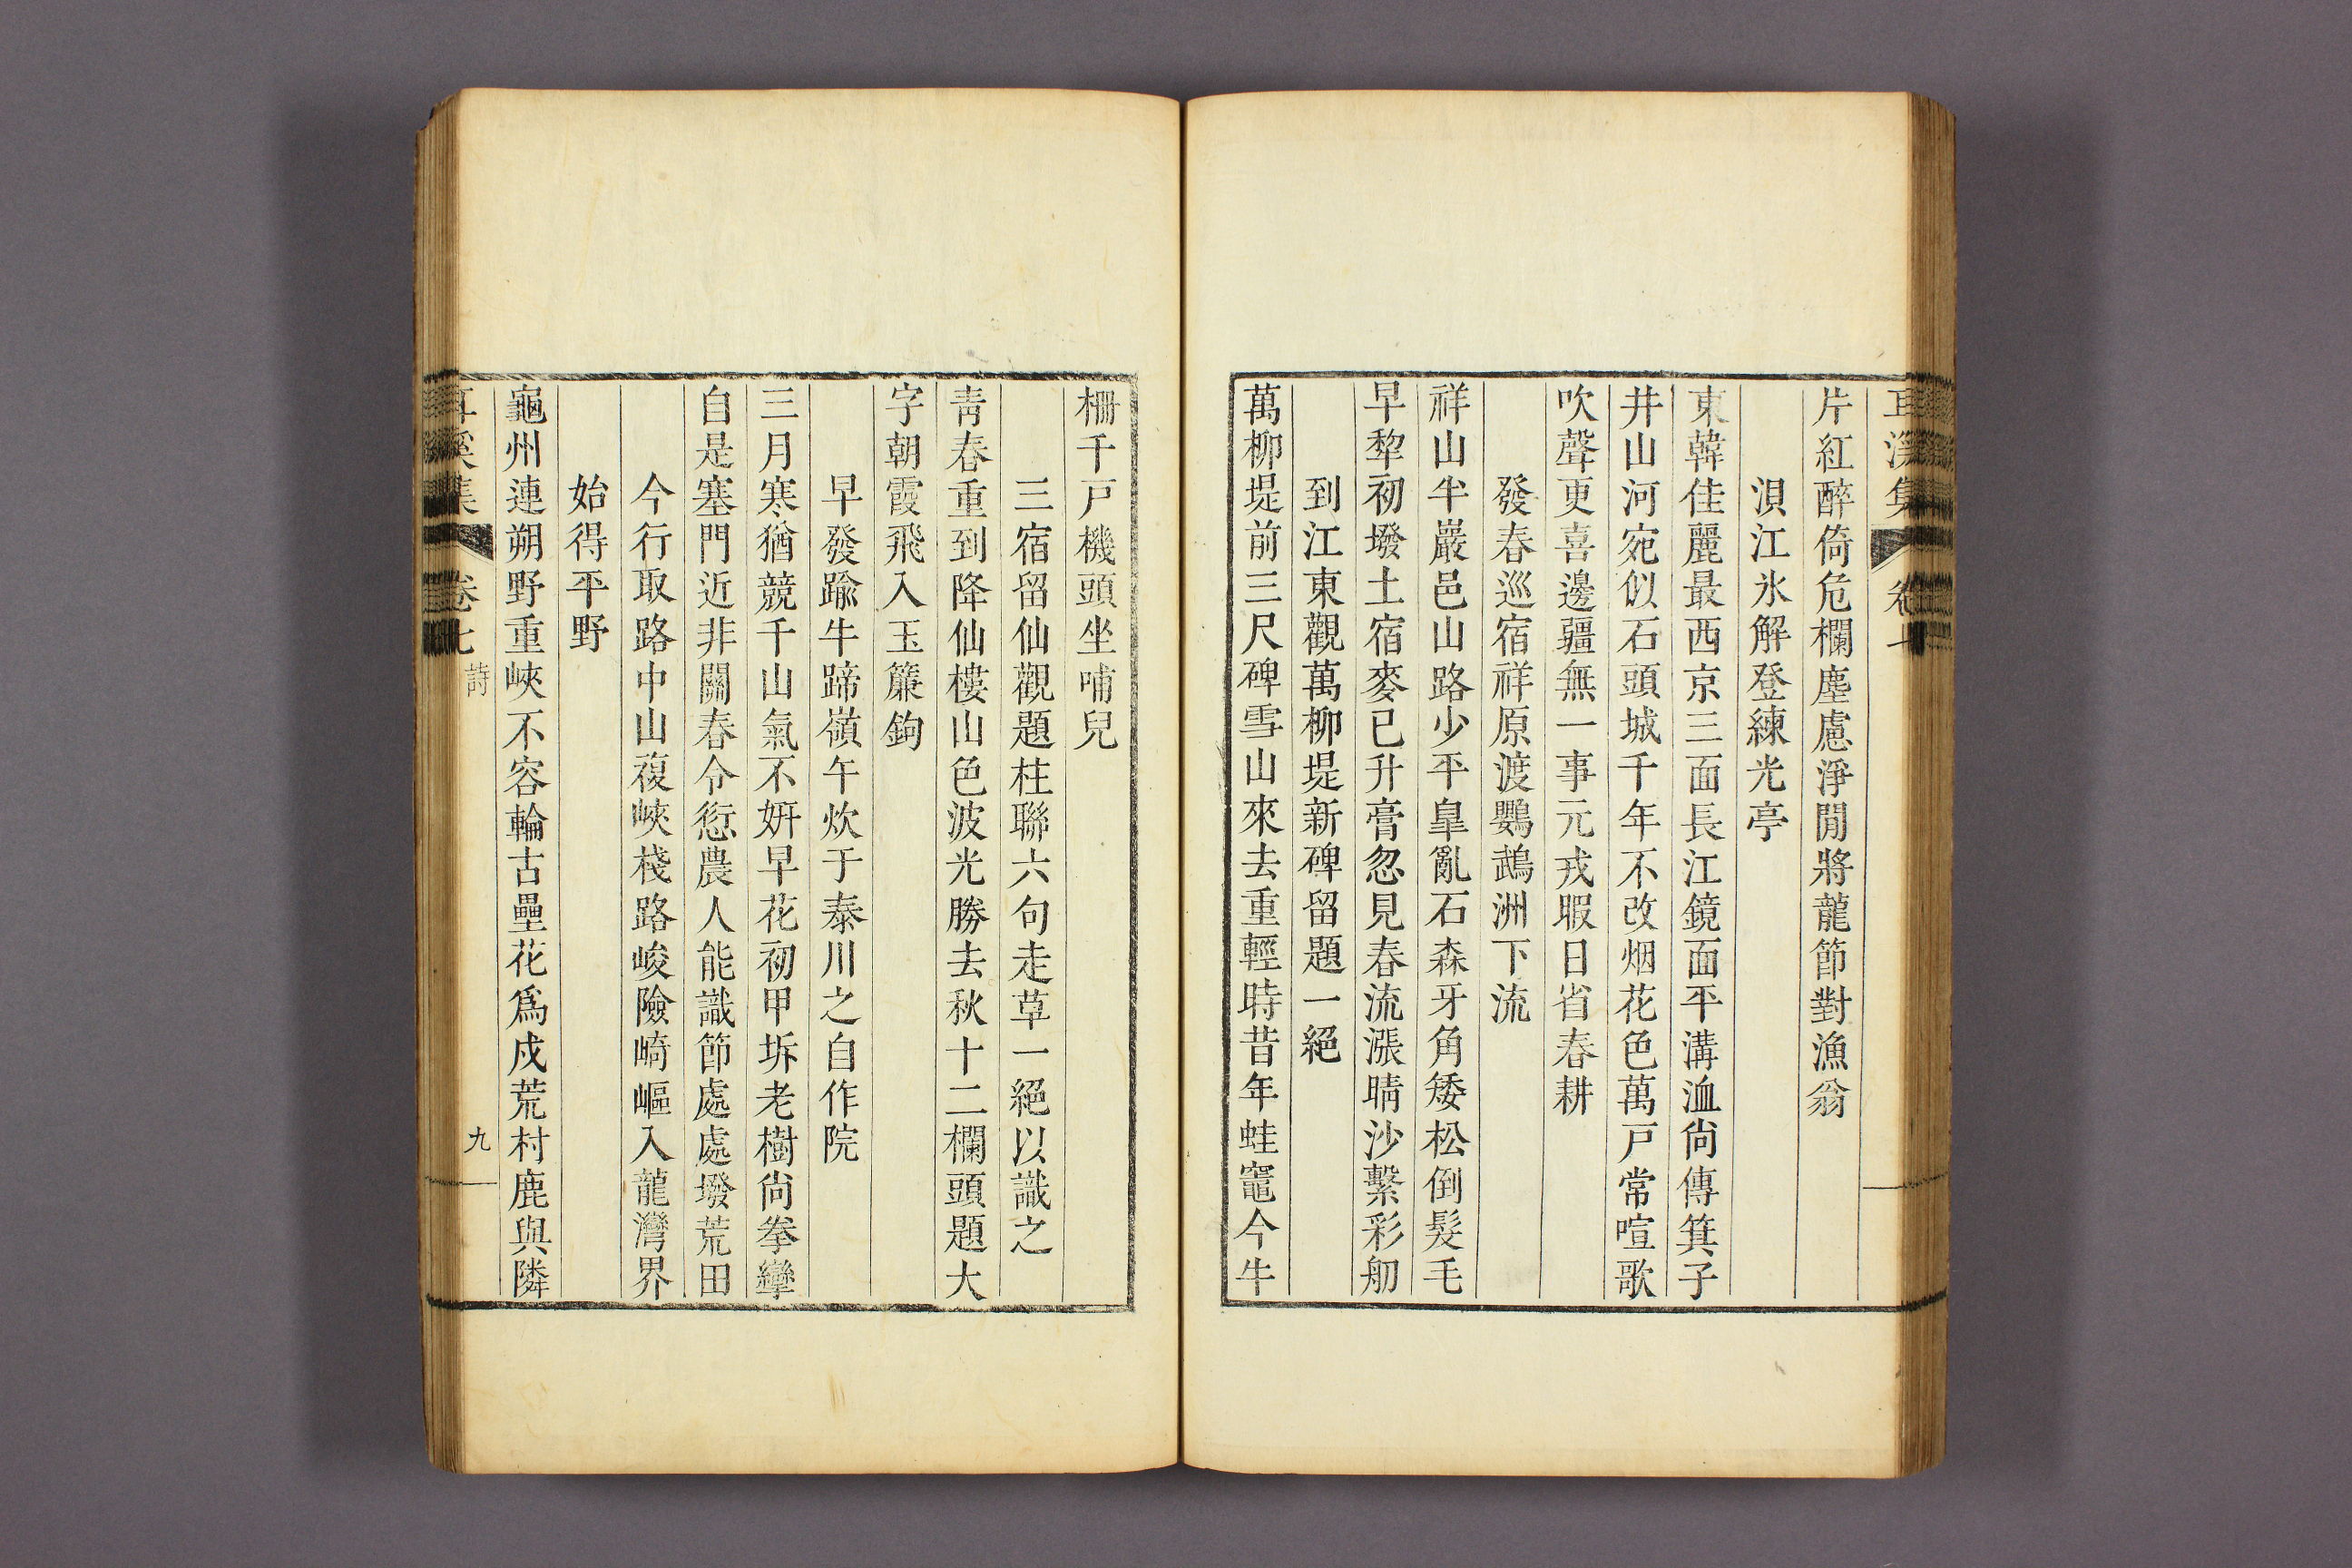 耳溪集 卷七
片紅醉倚危欄塵慮淨閒將龍節對漁翁
浿江氷解登練光亭
東韓佳麗最西京三面長江鏡面平溝洫尙傳箕子
井山河宛似石頭城千年不改烟花色萬戸常喧歌
吹聲更喜邊疆無一事元戎暇日省春耕
發春巡宿祥原渡鸚鵡洲下流
祥山半巖邑山路少平皐亂石森牙角矮松倒髮毛
早犂初墢土宿麥已升膏忽見春流漲晴沙繫彩舠
到江東觀萬柳堤新碑留題一絕
萬柳堤前三尺碑雪山來去重輕時昔年蛙竈今牛
柵千戸機頭坐哺兒
三宿留仙觀題柱聯六句走草一絕以識之
靑春重到降仙樓山色波光勝去秋十二欄頭題大
字朝霞飛入玉簾鉤
早發踰牛蹄嶺午炊于泰川之自作院
三月寒猶競千山氣不姸早花初甲坼老樹尙拳攣
自是塞門近非關春令愆農人能識節處處墢荒田
今行取路中山複峽棧路峻險崎嶇入龍灣界
始得平野
龜州連朔野重峽不容輪古壘花爲戍荒村鹿與隣
耳溪集 卷七 詩 九